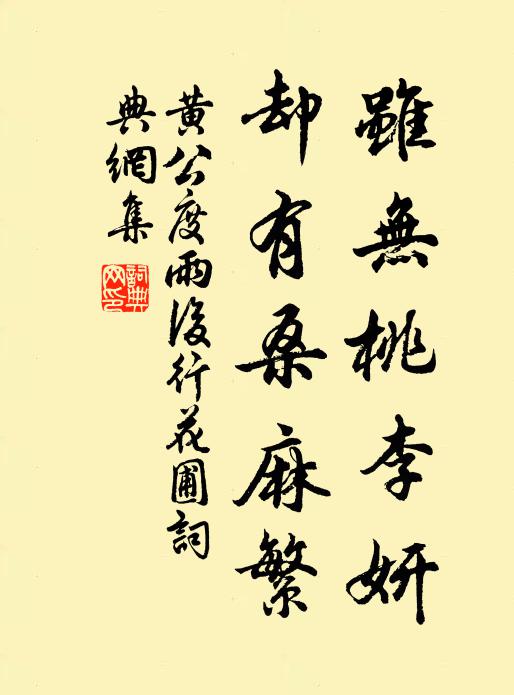 雖無桃李妍
却有桑麻繁
黄公度雨後行花圃詞
典網集
詞典網印